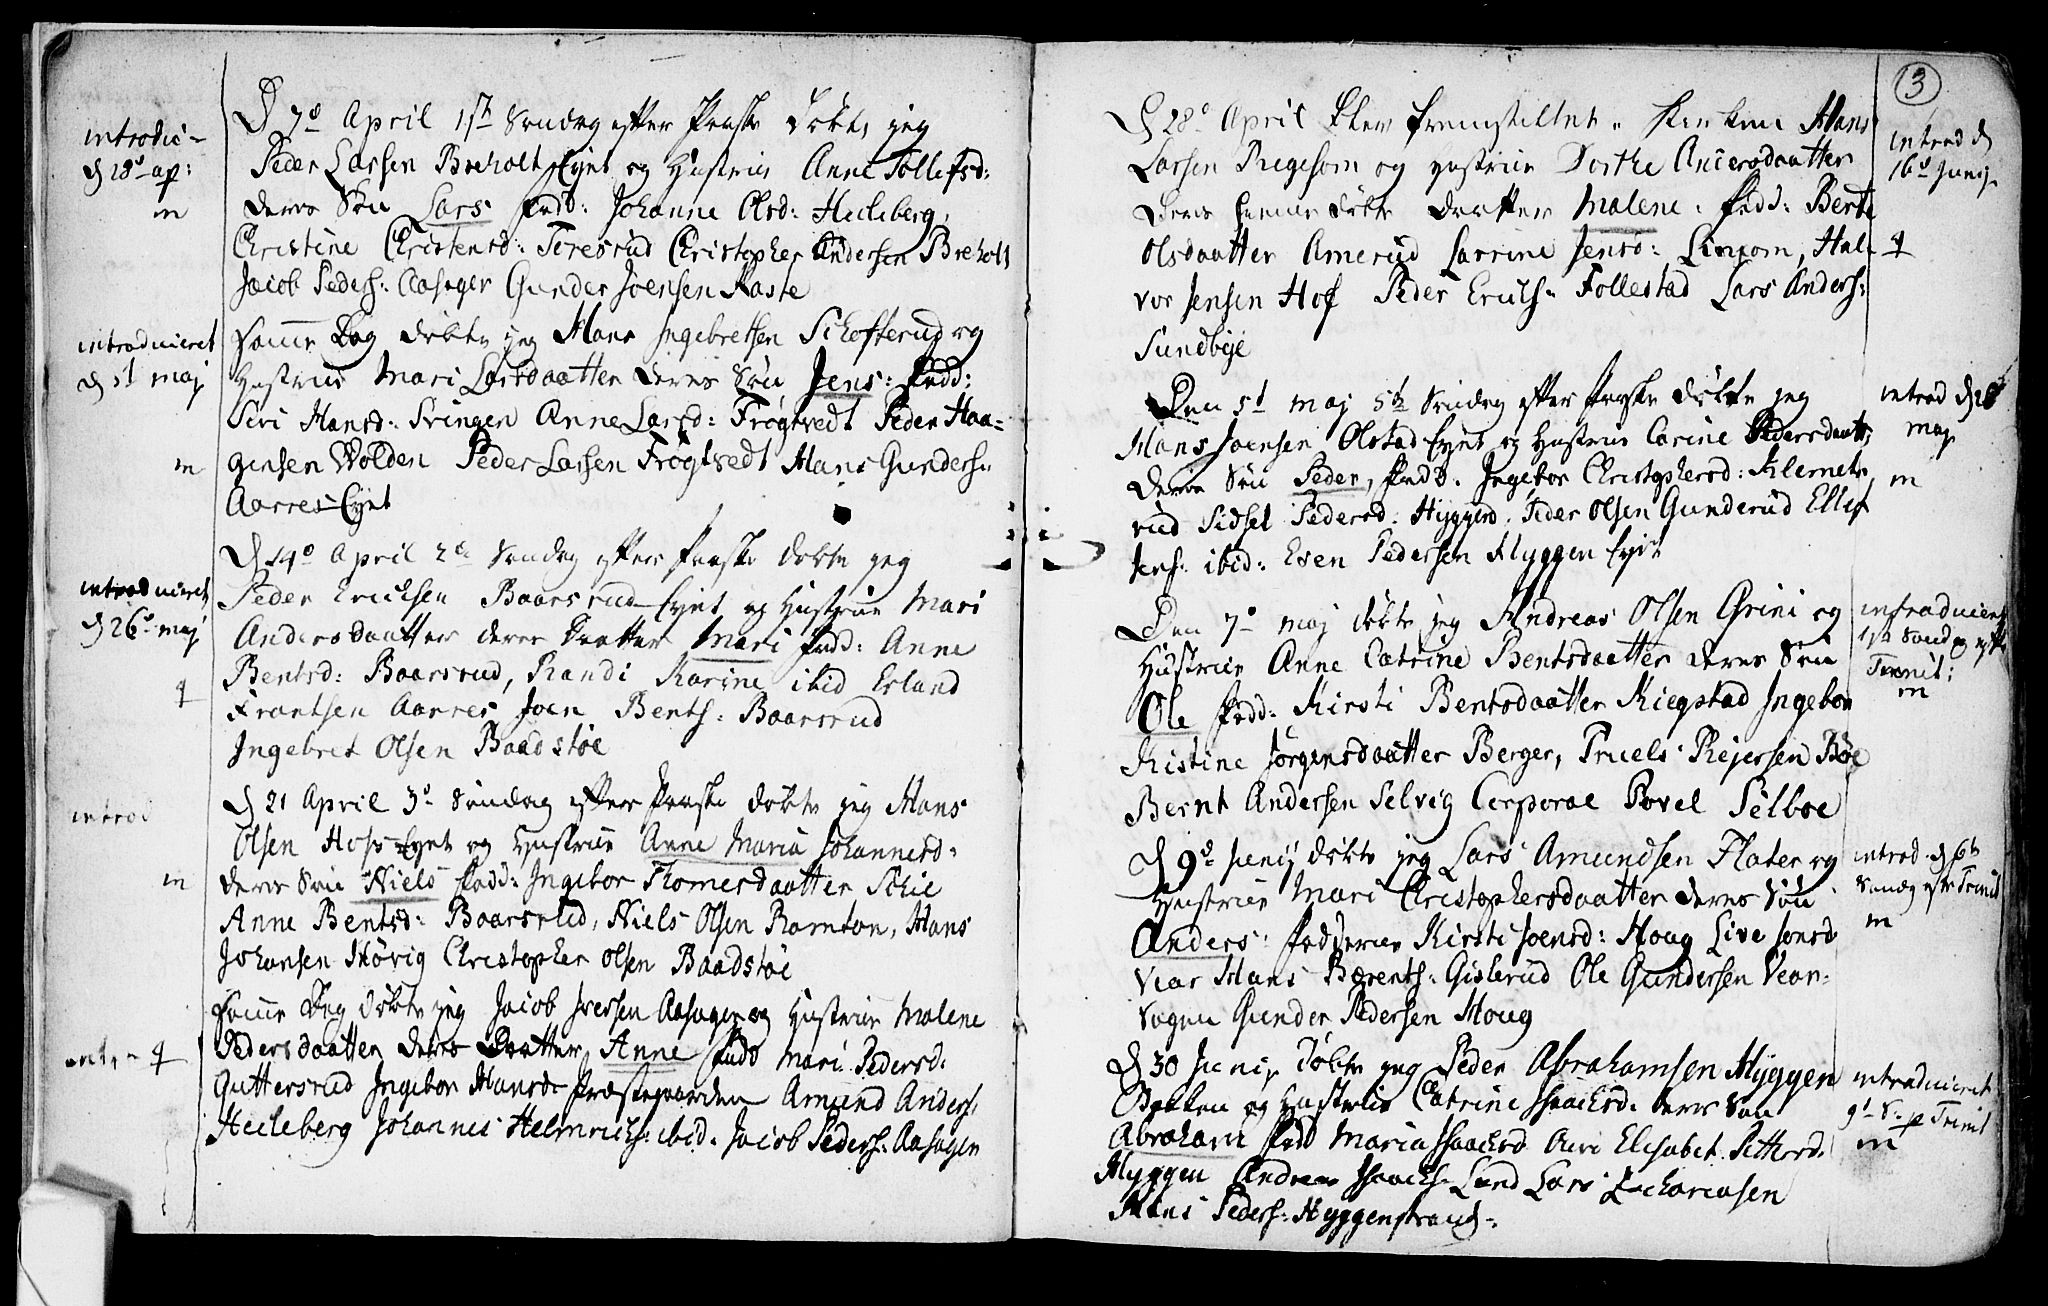 introdu-
d 28de ap:
m
D 7de April 1ste Søndag efter Paaske døbte jeg
Peder Larsen Breholt Eyet og Hustrue Anne Tollefsd:
deres Søn Lars Fadd: Johanne Olsd: Heeleberg,
Christine Christensd: Teresrud Christopher Andersen Breholt
Jacob Peders: Aasager Gunder Joensen Raste
introduceret
d 5t maj
m
Samme Dag døbte jeg Hans Ingebretsen Schofterud og
Hustrue Mari Larsdaatter deres Søn Jens: Fadd:
Siri Hansd: Svingen Anne Larsd: Frøgtvedt Peder Haa-
gensen Wolden Peder Larsen Frøgtvedt Hans Gunders:
Aarres-Eyet
introduceret
d 26de maj
q
D 14de April 2den Søndag efter Paaske døbte jeg
Peder Erichsen Baarsrud-Eyet og Hustrue Mari
Andersdaatter deres Daatter Mari Fadd: Anne
Bentsd: Baarsrud, Randi Karine ibid Erland
Frantsen Aarres, Joen Bents: Baarsrud
Ingebret Olsen Baadstøe
introd
m
D 21 April 3de Søndag efter Paaske døbte jeg Hans
Olsen Hofs-Eyet og Hustrue Anne Maria Johannesd:
deres Søn Niels Fadd: Ingebor Thomesdaatter Schie
Anne Bentsd: Baarsrud, Niels Olsen Ramton, Hans
Johansen Kiøvig Christopher Olsen Baadstøe
intr- q
Samme Dag døbte jeg Jacob Iversen Aasager og Hustrue Malene
Pedersdaatter deres Daatter Anne Fadd Mari Pedersd:
Guttersrud Ingebor Hansd: Præstegaarden Amund Anders:
Heeleberg Johannes Helmrichs: ibid. Jacob Peders: Aasagen
3
D 28de April blev fremstillet i Kirken Hans
Larsen Regesom og Hustrue Dorthe Andersdaatter
deres hiemme døbte Daatter Malene. Fadd: Berte
Olsdaatter Amerud Larrine Jensd: Linxom, Hal-
vor Jensen Hof Peder Erichs: Follestad Lars Anders:
Sundbye
introd d
16de Junij
q
Den 5t maj 5te Søndag efter Paaske døbte jeg
Hans Joensen Olstad Eyet og Hustrue Carine Pedersdaatt:
deres Søn Peder, Fadd. Ingebor Christophersd: Klemets
rud Sidsel Pedersd: Hyggen. Peder Olsen Gunderud Ellef
Jens: ibid: Even Pedersen Hyggen Eyet
introd d 28
maj
m
Den 7de maj døbte jeg Andreas Olsen Grini og
Hustrue Anne Catrine Bentsdaatter deres Søn
Ole Fadd: Kirsti Bentsdaatter Kiegstad Ingebor
Kistine Jørgensdaatter Berger, Truels Rejersen Bøe
Bernt Andersen Selvig Corporal Povel Selboe
introduceret
1ste Søndag efter
Trinit:
m
D 9de Junij døbte jeg Lars Amundsen Flater og
Hustrue Mari Christophersdaatter deres Søn
Anders. Fadderne Kirsti Joensd: Houg Live Jonsd
Vear Hans Bærents: Gislerud Ole Gundersen Vear-
Vogen Gunder Pedersen Houg
introd d 6te
Søndag efter Trinit
m
D 30 Junij døbte jeg Peder Abrahamsen Hyggen
Bakken og Hustrue Catrine Isaachsd: deres Søn
Abraham Fadd Maria Isaachsd Auri Elisabet Pettersd.
Hyggen Andreas Isaachs: Lund Lars Zachariasen
Hans Peders: Hyggenstrand.
introduceret
9de S. p Trinit
m